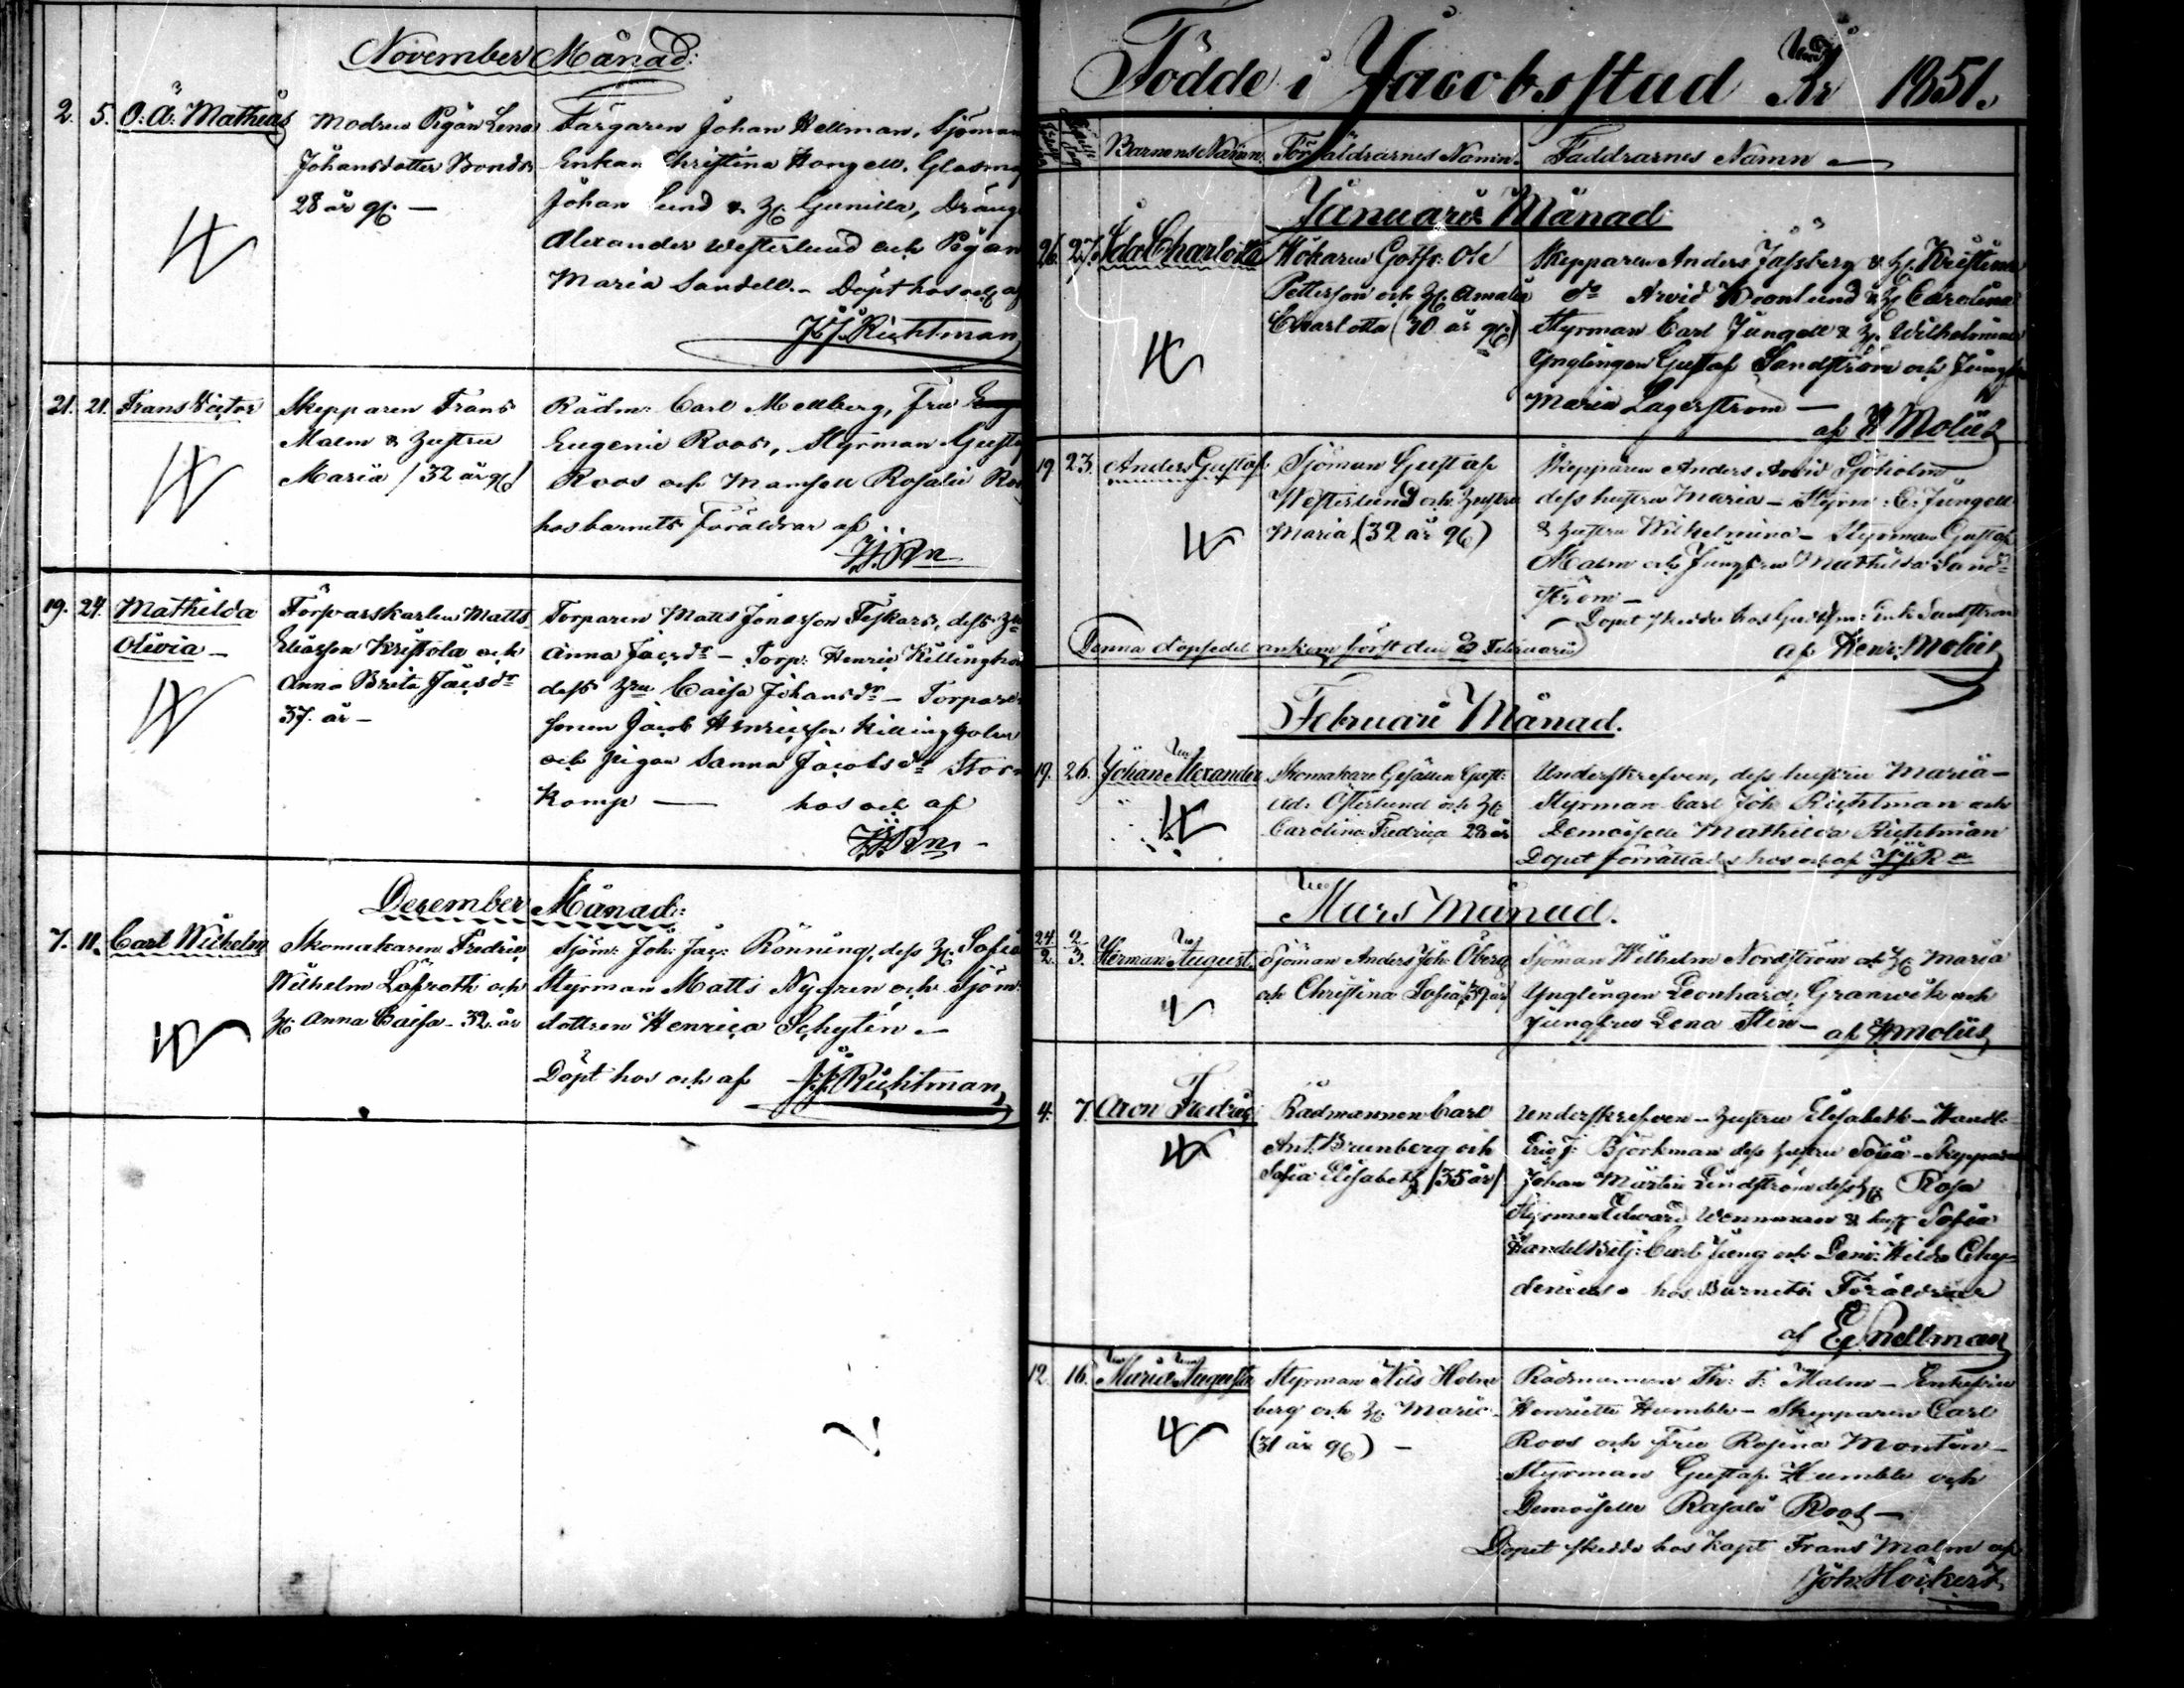 November Månad:
2. 5. O. Ä. Mathias
Modren Pigan Lena
Johansdotter Bonds
28 år gl. —
Färgaren Johan Hellman, Sjöman
Enkan Christina Hongell. Glasm
Johan Lund & H. Gunilla, Dräng
Alexander Westerlund och Pigan
Maria Sandell. – Döpt hos och af
J. J. Richtman
21. 21. Frans Victor
Skepparen Frans
Malm & hustru
Maria / 32 år gl /
Rådm: Carl Mellberg, Fru
Eugenie Roos, Styrman Gustaf
Roos och Mamsell Rosalie Ro
hos barnets föräldrar af
J. J. Rn
19. 24. Mathilda
Olivia –
Törparskarlen Matts
Eliasson Kristola och
Anna Brita Jacsdr
37. år –
Torparen Matts Jonasson Fiskars, dess
Anna Jacsdr – Torp: Henric Killingho
dess hru Caisa Johansdr – Torpare
sonen Jacob Henricsson Killingholm
och pigan Sanna Jacobsdr Stor
kamp — hos och af
J. J. Rn –
December Månad:
7. 11. Carl Wilhelm
Skomakaren Fredric
Wilhelm Löfroth och
H. Anna Caisa – 32. år
Sjöm: Joh: Jac: Rönning, dess H. Sofia
Styrman Matts Nygren och Sjöm:
dottren Henrica Schytin –
Döpt hos och af J. J. Richtman
Födde i Jacobsstad År 1851.
Barnens Namn. Föräldrarnes Namn. Faddrarnes Namn —
Januarii Månad
26. 27. Ida Charlotta
Hökaren Gotfr: Ole
Petterson och H. Amalia
Charlotta (30 år gl.)
Skepparen Anders Jafsberg & H. Kristina
do Arvid Kronlund & H. Carolina
Styrman Carl Jungell & H. Wilhelmina
Ynglingen Gustaf Sandström och Jungfr
Maria Lagerström —
af H Molis
19 23. Anders Gustaf
Sjöman Gustaf
Westerlund och hustru
Maria (32 år gl)
Skepparen Anders Arvid Sjöholm
dess hustru Maria – Styrm: C. Jungell
& hustru Wilhelmina – Styrman Gustaf
Malm och Jungfru Mathilda Sand=
ström –
Dopet skedde hos Enk Sandström
Denna dopsedel ankom först den Februarii
af Henr: Molis
Februari Månad.
19. 26. Johan Alexander
Skomakare Gesällen Gust:
Ad: Österlund och H.
Carolina Fredrica 28 år
Underskrefven, dess hustru Maria –
Styrman Carl Joh: Richtman och
Demoiselle Mathilda Richtman
Dopet förrättades hos och af J J Rn
Mars Månad.
24/2. 2/3. Herman August.
Sjöman Anders Joh: Öberg
och Christina Sofia, 39 år
Sjöman Wilhelm Nordström och H. Maria
Ynglingen Leonhard Granwik och
Jungfru Lena Sten – af H Molis
4. 7. Aron Fredric
Rådmannen Carl
Ant: Brunberg och
Sofia Elisabeth /35 år/
Underskrefven – hustru Elisabeth – Handl:
Eric J: Björkman dess hustru Sofia – Skepparen
Johan Martin Lindström dess H. Rosa
Styrman Edward Wennman & hust Sofia
Handelsbetj: Carl Jung och Dem: Hilda Chy=
denius. hos Barnets Föräldrar
af E. Snellman
12. 16. Maria Augusta
Styrman Nils Holm
berg och H. Maria
(31 år gl) –
Rådmannen Th: F: Malm – Enkefru
Henriette Humble – Skepparen Carl
Roos och Fru Rosina Montin –
Styrman Gustaf Humble och
Demoiselle Rosalie Roos —
Dopet skedde hos Kapt Frans Malm af
Joh: Höckert